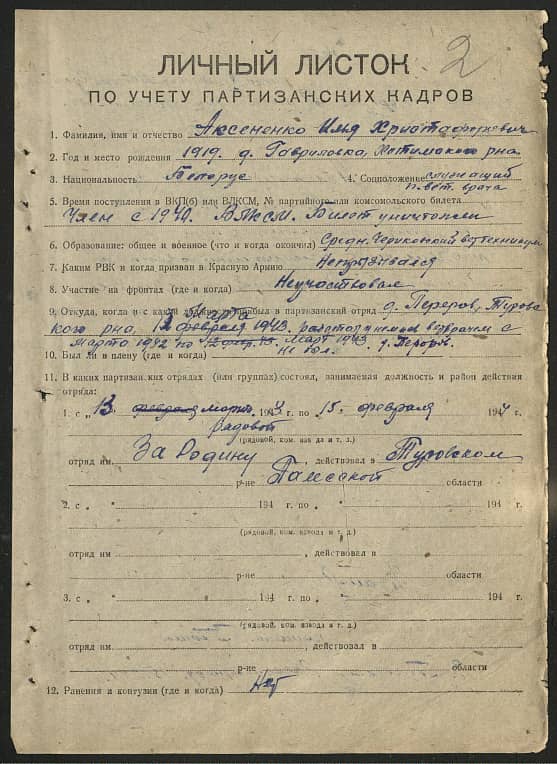 2
ЛИЧНЫЙ ЛИСТОК
ПО УЧЕТУ ПАРТИЗАНСКИХ КАДРОВ
1. Фамилия, имя и отчество Аксененко Илья Христофорович
2. Год и место рождения 1919. д. Гавриловка, Хотимского р-на
3. Национальность Белорус 4. Соцположение служащий
п. вет. врача
5. Время поступления в ВКП(б) или ВЛКСМ, № партийного или комсомольского билета
Член с 1940. ВЛКСМ. Билет уничтожен
6. Образование: общее и военное (что и когда окончил) Средн. Чериковский ветехникум
7. Каким РВК и когда призван в Красную Армию Непризывался
8. Участие на фронтах (где и когда) Неучаствовал
9. Откуда, когда и с какой прибыл в партизанский отряд д. Переров, Туров
ского р-на, 12 февраля марта 1943. работал ветврачем с
марта 1942 по март 1943 д. Переров.
10. Был ли в плену (где и когда) не был.
11. В каких партизанских отрядах (или группах) состоял, занимаемая должность и район действия
отряда:
1. с „ 13 февраля марта 1943 г. по „ 15. февраля 1944 г.
рядовой
(рядовой, ком. взвода и т. д.)
отряд им За Родину, действовал в Туровском
р-не Полесской области
2. с „ " 194 г. по „ " 194 г.
(рядовой, ком. взвода и т. д.)
отряд им , действовал в
р-не области
3. с „ " 194 г. по „ " 194 г.
(рядовой, ком. взвода и т. д.)
отряд им , действовал в
р-не области
12. Ранения и контузии (где и когда) Нет